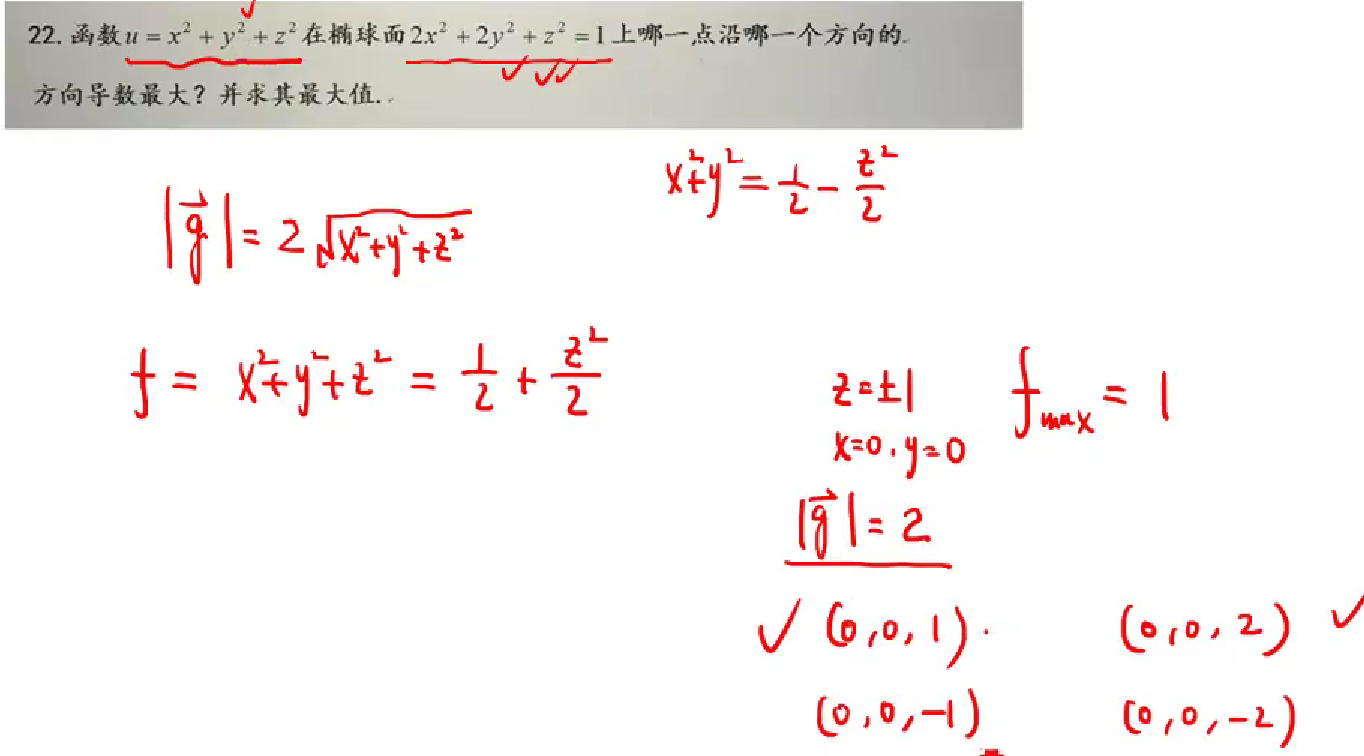 22. 函数 u = x² + y² + z² 在椭球面 2x² + 2y² + z² = 1 上哪一点沿哪一个方向的
方向导数最大？并求其最大值.
x² + y² = 1/2 − z²/2
|g⃗| = 2√(x² + y² + z²)
f = x² + y² + z² = 1/2 + z²/2
z = ±1
x=0, y=0
f_max = 1
|g⃗| = 2
✓ (0,0,1). (0,0,2) ✓
(0,0,−1) (0,0,−2)